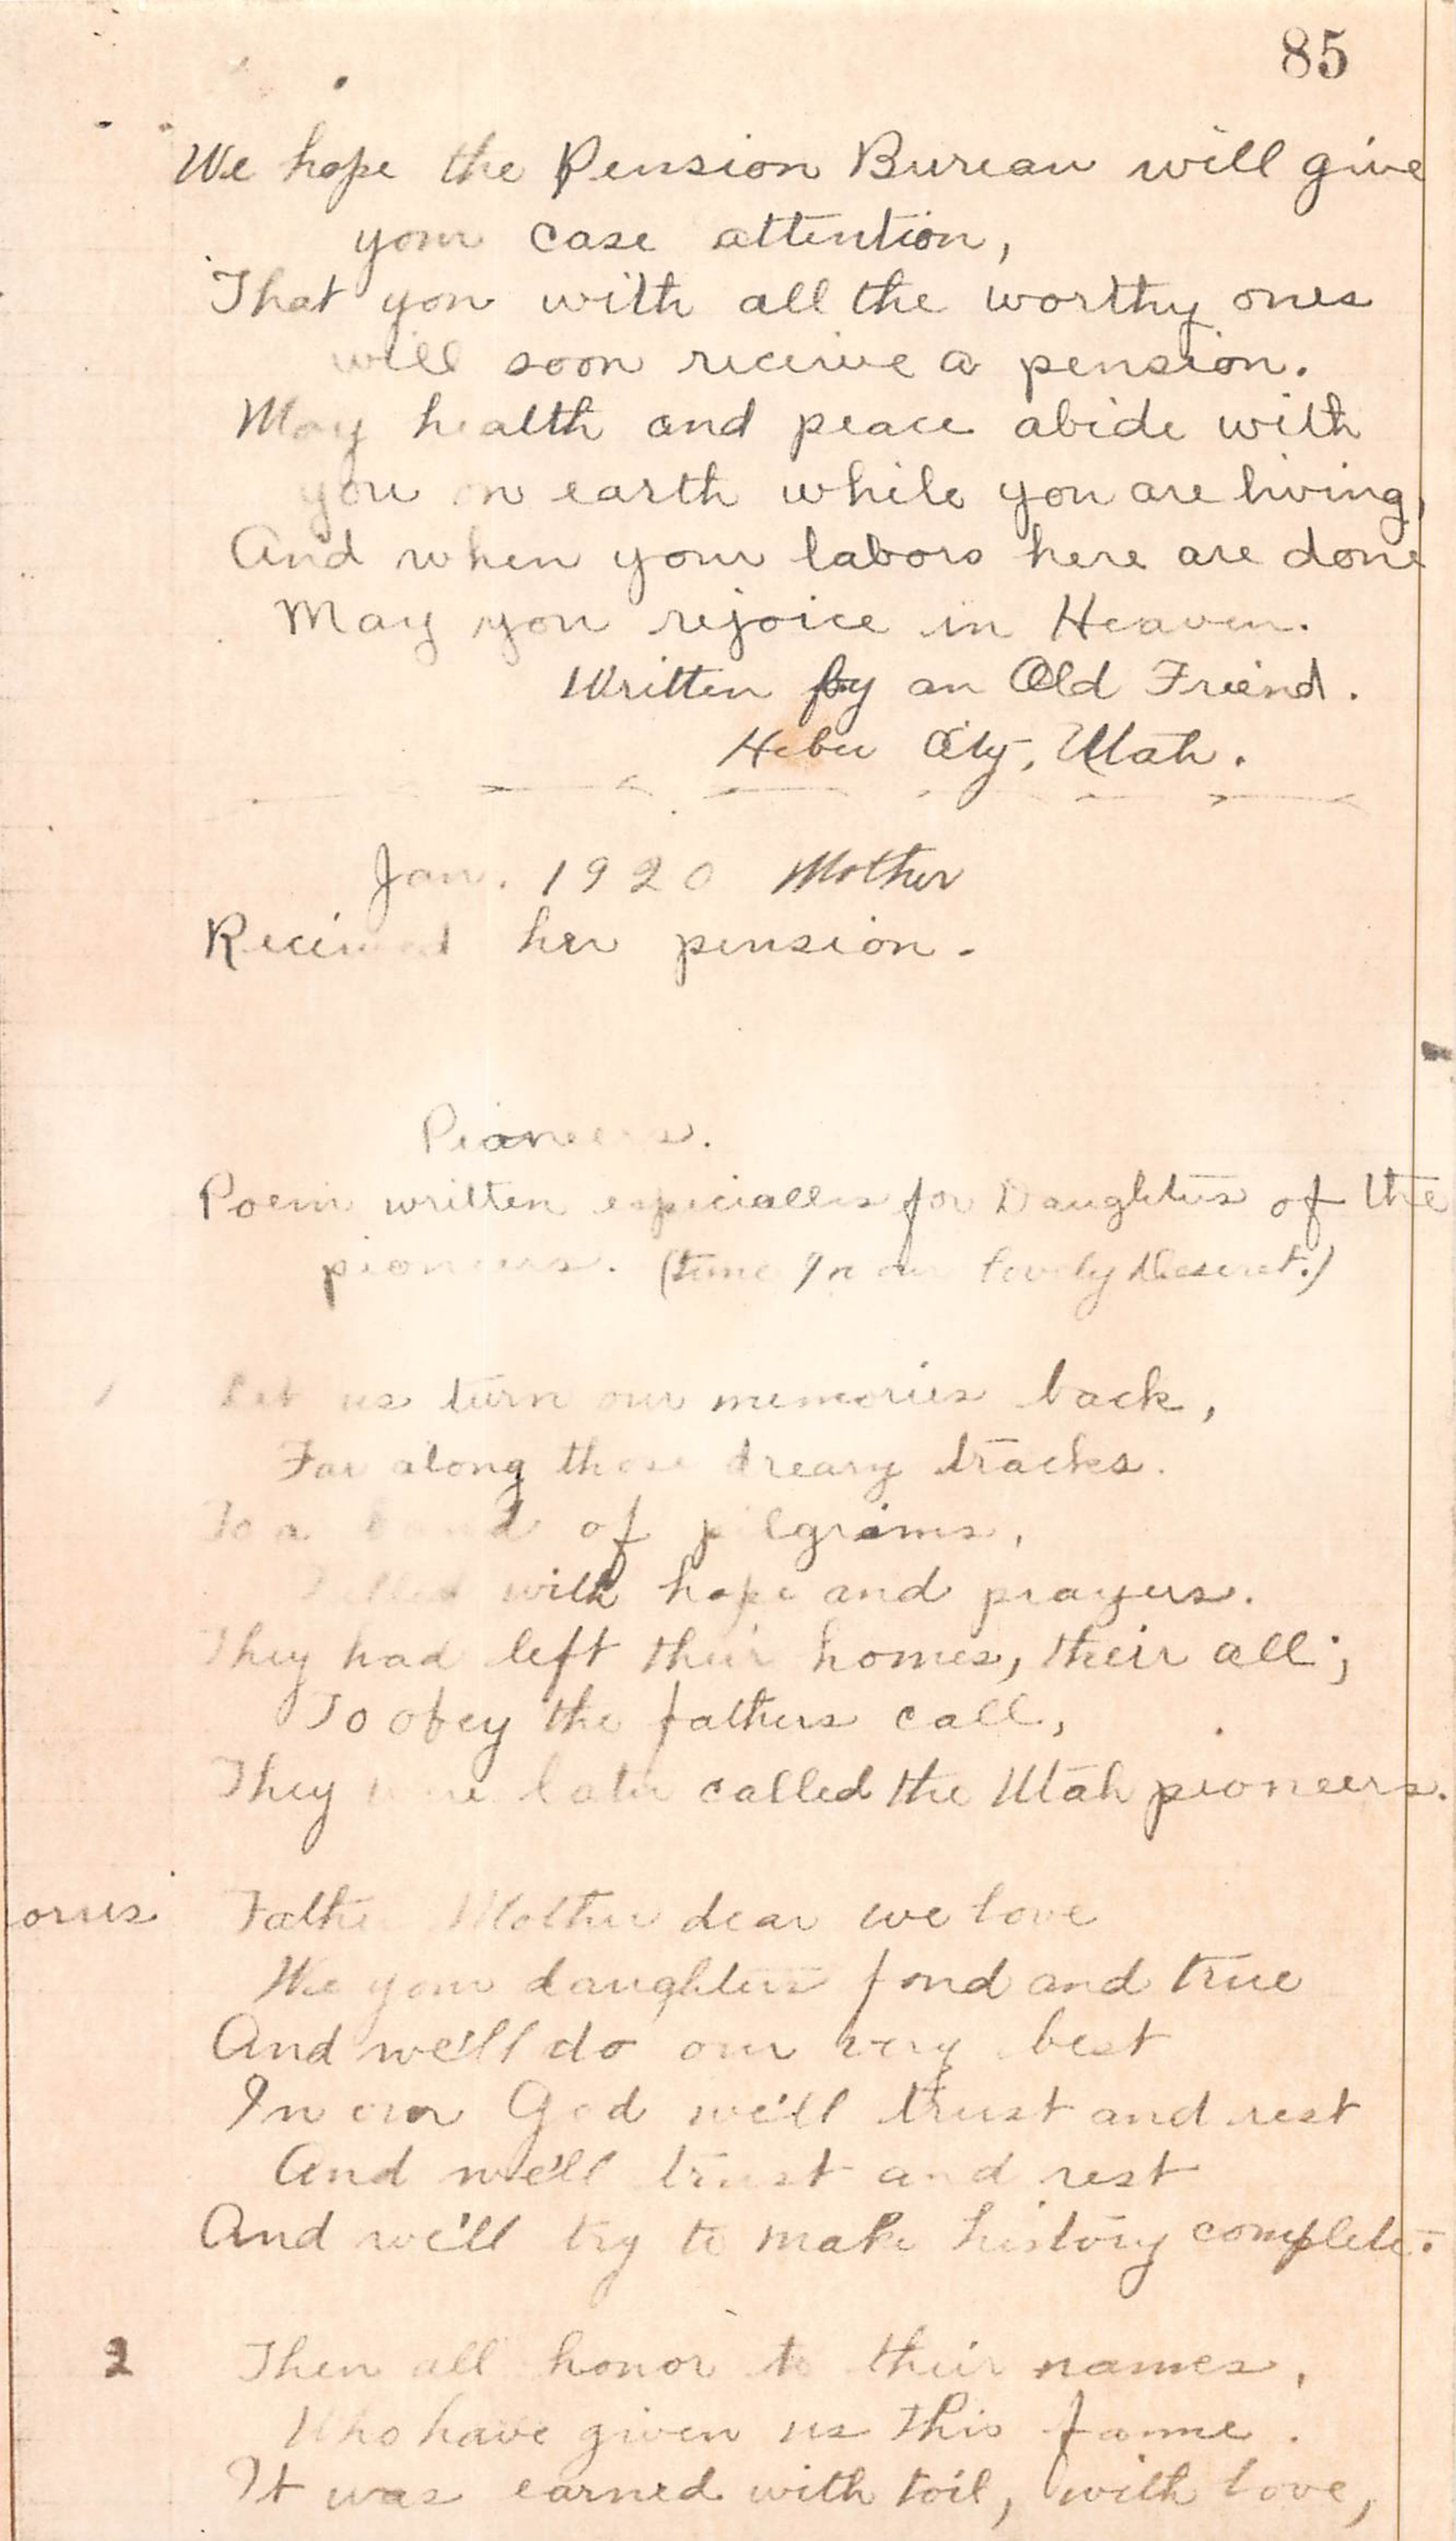 85
We hope the Pension Bureau will give
your case attention,
That you with all the worthy ones
will soon receive a pension.
May health and peace abide with
you on earth while you are living,
And when your labors here are done
May you rejoice in Heaven.
Written by an Old Friend.
Heber City, Utah.
Jan. 1920 Mother
Received her pension.
Pioneers.
Poem written especially for Daughters of the
pioneers. (tune In our lovely Deseret.)
1 Let us turn our memories back,
Far along those dreary tracks.
To a band of pilgrims,
Filled with hope and prayers.
They had left their homes, their all;
To obey the fathers call,
They were later called the Utah pioneers.
orus Father Mother dear we love
We your daughters fond and true
And we'll do our very best
In our God we'll trust and rest
And we'll trust and rest
And we'll try to make history complete.
2 Then all honor to their names,
Who have given us this fame.
It was earned with toil, with love,